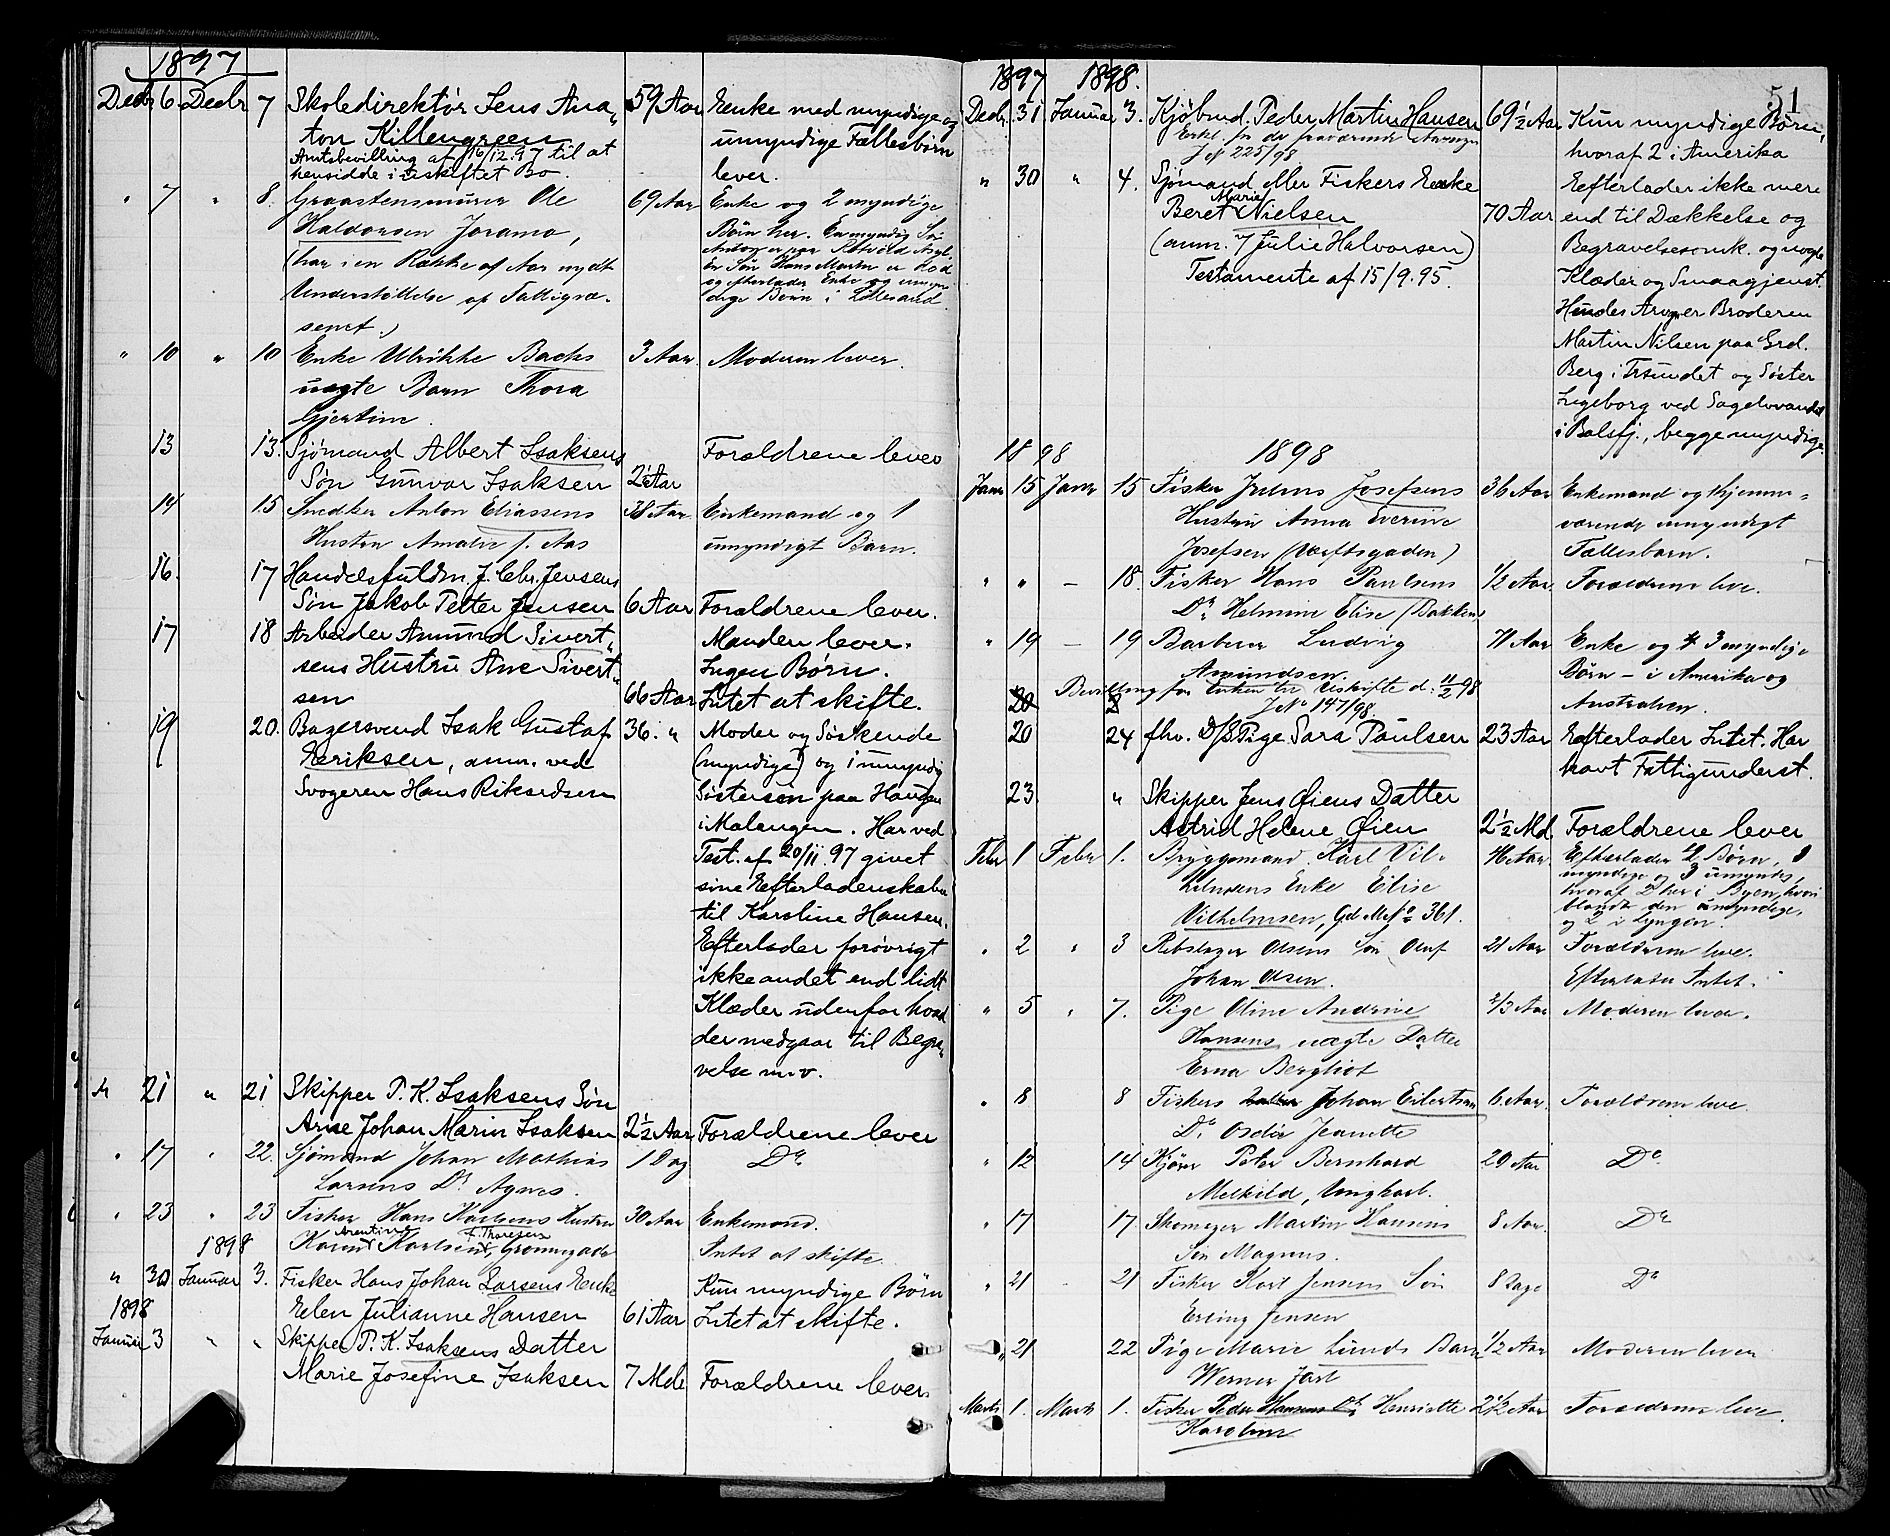 1897
Decbr 6 Decbr 7 Skoledirektör Jens Ana- 59 Aar Enke med myndige og
ton Killengreen umyndige Fællesbörn
Amtsbevilling af 16/12.97 til at lever.
hensidde i uskiftet Bo.
" 7 " 8. Graastensmurer Ole 69 Aar Enke og 2 myndige
Haldorsen Joramo, Börn her. En myndig Sön
(har i en Række af Aar nydt En Sön Hans Martin er död
Understöttelse af Fattigvæ- og efterlader Enke og umyn-
senet.) dige Börn i Lillesand
" 10 " 10 Enke Ulrikke Bachs 3 Aar. Moderen lever.
uægte Barn Thora
Gjertine.
13 13. Sjömand Albert Isaksens Forældrene lever
Sön Gunvar Isaksen 2 Aar
14 15 Snedker Anton Eliassens 38 Aar. Enkemand og 1
Hustru Amalie f. Aas umyndigt Barn.
16. 17 Handelsfuldm. J. Chr. Jensens
Sön Jakob Petter Jensen 6 Aar Forældrene lever.
17 18 Arbeider Amund Sivert- Manden lever.
sens Hustru Ane Sivert- Ingen Börn.
sen 66 Aar Intet at skifte.
19 20. Bagersvend Isak Gustaf 36. " Moder og Söskende
Eeriksen, anm. ved (myndige) og 1 umyndig
Svogeren Hans Rikardsen Söstersön paa Haugen
i Malangen. Har ved
Test. af 20/11.97 givet
sine Efterladenskaber
til Karoline Hansen.
Efterlader forövrigt
ikke andet end lidt
Klæder udenfor hvad
der medgaar til Begra-
velse m.v.
" 21 " 21 Skipper P. K. Isaksens Sön
Arne Johan Marin Isaksen 2½ Aar Forældrene lever
" 17 " 22. Sjömand Johan Mathias 1 Dag Do
Larsens Dr Agnes.
" 23 " 23 Fisker Hans Karlsens Hustru 30 Aar Enkemand.
1898 Karen Arentine Karlsen f. Thoresen, Grönnegade Intet at skifte
" 30 Januar 3. Fisker Hans Johan Larsens Enke Kun myndige Börn
1898 Elen Julianne Hansen 61 Aar Intet at skifte.
Januar 3 " " Skipper P. K. Isaksens Datter
Marie Josefine Isaksen 7 Mdr Forældrene lever.
51
1897 1898.
Decbr. 31 Januar 3. Kjöbmd. Peder Martin Hansen 69½ Aar Kun myndige Börn,
hvoraf 2 i Amerika
J.N 225/98
" 30 " 4. Sjömand eller Fiskers Enke Eefterlader ikke mere
Beret Marie Nielsen 70 Aar end til Dækkelse og
(anm. af Julie Halvorsen) Begravelsesomk. og nogle
Testamente af 15/9.95. Klæder og Smaagjenst.
Hendes Arver er Broderen
Martin Nilsen paa Grd.
Berg i Trsundet og Söster
Ingeborg ved Sagelvvandet
i Balsfj., begge myndige
1898 1898
Janr 15 Janr 15 Fisker Julius Josefsens 36 Aar Enkemand og hjemme-
Hustru Anna Everine værende umyndigt
Josefsen (Værftsgaden) Fællesbarn.
" " — 18. Fisker Hans Paulsens ½ Aar. Forældrene leve.
Dr Helmine Elise (Bakken)
" 19 — 19 Barberer Ludvig 71 Aar Enke og 3 myndige
Amundsen. Börn — i Amerika og
Bevilling for Enken til Uskifte d. 11/2 98 Australien.
J.No 147/98.
20 24 fhv. D/S Pige Sara Paulsen 23 Aar Efterlader Intet. Har
havt Fattigunderst.
23. " Skipper Jens Öiens Datter
Astrid Helene Öien 2½ Md. Forældrene lever
Febr 1 Febr 1. Bryggemand Karl Vil- 46 Aar. Efterlader 4 Börn, 1
helmsens Enke Elise myndige og 3 umyndg,
Vilhelmsen, Gd. Mat. No 361. hvoraf 2 her i Byen, hvori
blandt den umyndige,
og 2 i Lyngen.
" 2 " 3 Rebslager Olsens Sön Olaf 21 Aar Forældrene leve.
Johan Olsen. Efterlader Intet.
" 5 " 7. Pige Oline Andrine 2/3 Aar Moderen lever.
Hansens uægte Datter
Erna Bergliot
" 8 8 Fiskers Johan Eilertsen 6 Aar. Forældrene leve.
Dr Jeanette
" 12 14 Kjörer Peter Bernhard 29 Aar Do
Melkild, Ungkarl.
" 17 17. Skomager Martin Hansens 8 Aar. Do
Sön Magnus.
" 21 — 21 Fisker Karl Jensens Sön 8 Dage Do
Erling Jensen
" 21 22 Pige Marie Lunds Barn ½ Aar Moderen lever
Werner Jarl
Marts 1. Marts 1. Fisker Peder Hansens Dr Henriette 2½ Aar Forældrene leve.
Karoline